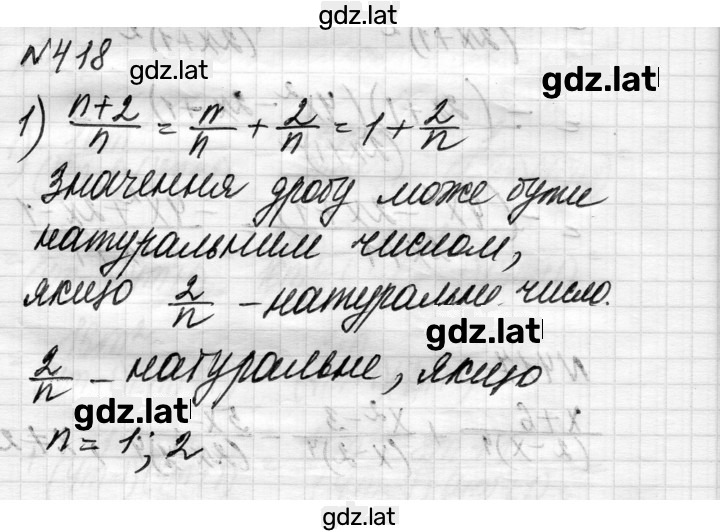 gdz.lat
№418
gdz.lat
gdz.lat
1) (n+2)/n = n/n + 2/n = 1 + 2/n
Значення дробу може бути
натуральним числом,
якщо 2/n - натуральне число.
gdz.lat
2/n - натуральне, якщо
gdz.lat
n = 1; 2
gdz.lat